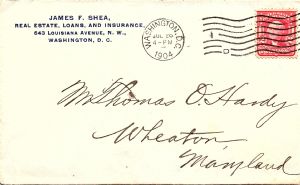 JAMES F. SHEA,
REAL ESTATE, LOANS, AND INSURANCE,
643 LOUISIANA AVENUE, N. W.,
WASHINGTON, D. C.
WASHINGTON, D.C.
JUL 20
4-PM
1904
Mr Thomas O. Hardy
Wheaton
Maryland